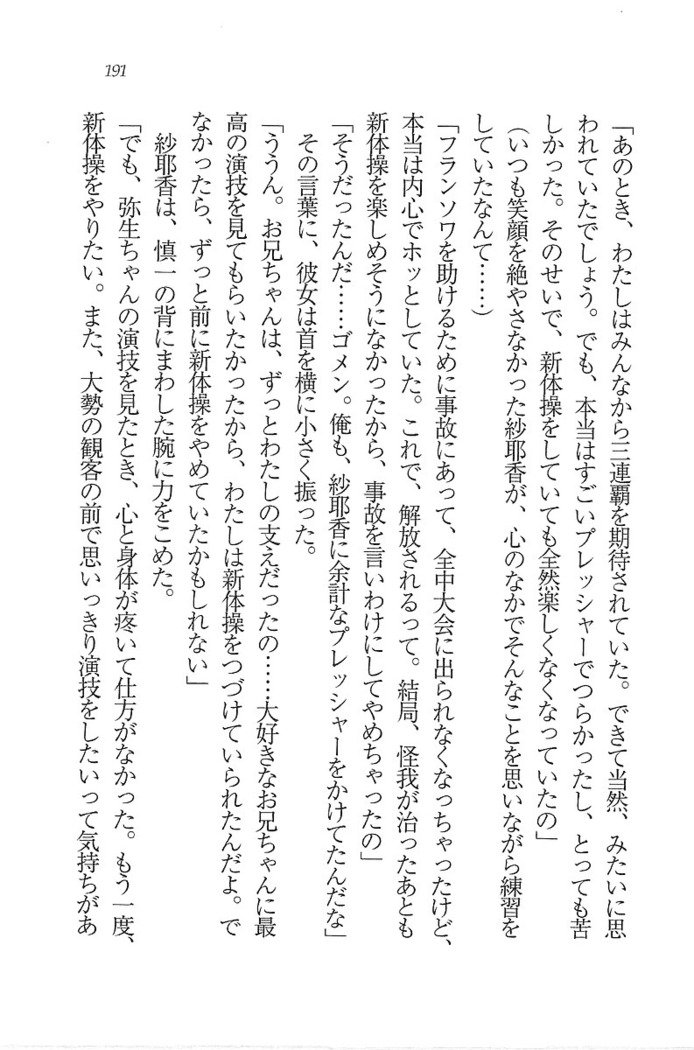 191
「あのとき、わたしはみんなから三連覇を期待されていた。できて当然、みたいに思
われていたでしょう。でも、本当はすごいプレッシャーでつらかったし、とっても苦
しかった。そのせいで、新体操をしていても全然楽しくなくなっていたの」
(いつも笑顔を絶やさなかった紗耶香が、心のなかでそんなことを思いながら練習を
していたなんて……)
「フランソワを助けるために事故にあって、全中大会に出られなくなっちゃったけど、
本当は内心でホッとしていた。これで、解放されるって。結局、怪我が治ったあとも
新体操を楽しめそうになかったから、事故を言いわけにしてやめちゃったの」
「そうだったんだ……ゴメン。俺も、紗耶香に余計なプレッシャーをかけてたんだな」
その言葉に、彼女は首を横に小さく振った。
「ううん。お兄ちゃんは、ずっとわたしの支えだったの……大好きなお兄ちゃんに最
高の演技を見てもらいたかったから、わたしは新体操をつづけていられたんだよ。で
なかったら、ずっと前に新体操をやめていたかもしれない」
紗耶香は、慎一の背にまわした腕に力をこめた。
「でも、弥生ちゃんの演技を見たとき、心と身体が疼いて仕方がなかった。もう一度、
新体操をやりたい。また、大勢の観客の前で思いっきり演技をしたいって気持ちがあ